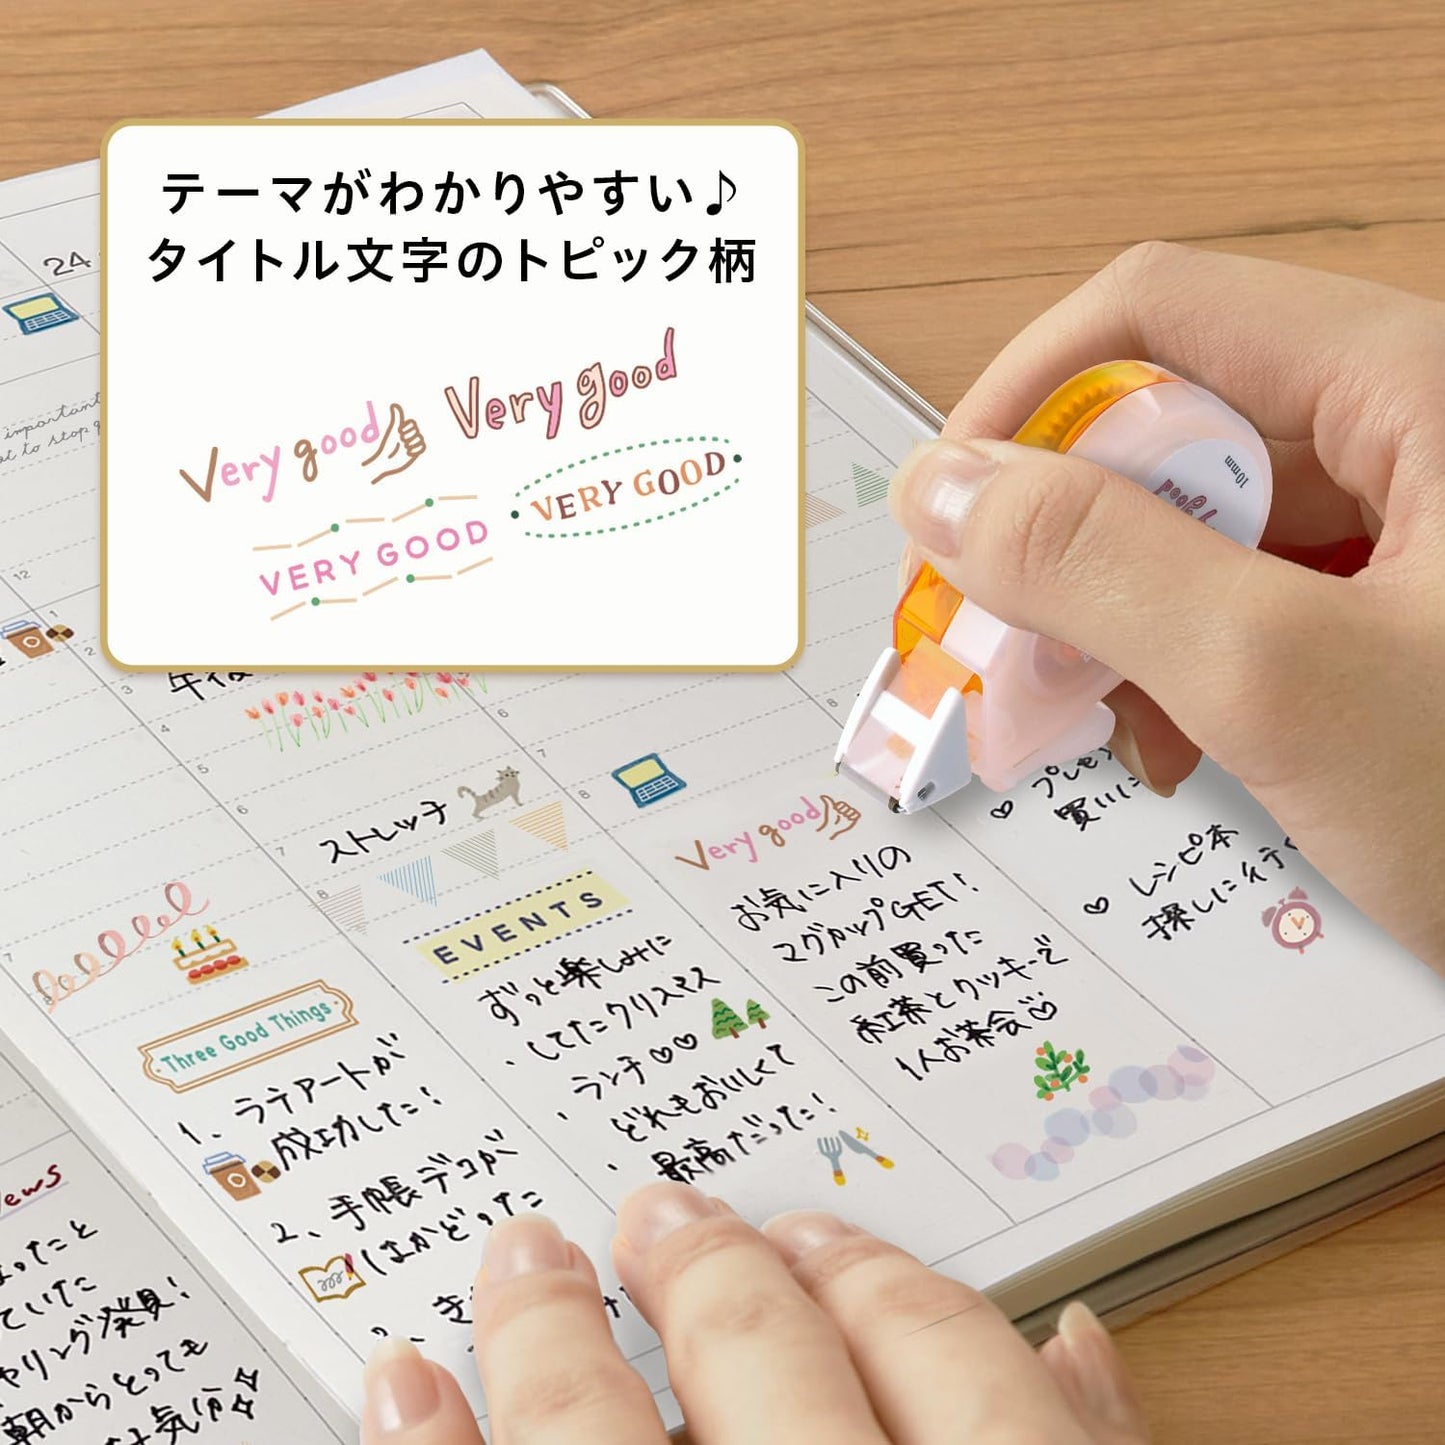 テーマがわかりやすい♪
タイトル文字のトピック柄
Very good
Very good
VERY GOOD
VERY GOOD
24
important
to stop
12
1
2
3
午後
4
5
6
7
8
6
7
8
8
10mm
good
ストレッチ
7
Three Good Things
1、ラテアートが
成功した!
2、手帳デコが
はかどった
き
EVENTS
ずっと楽しみに
・してたクリスマス
・ランチ♡♡
どれもおいしくて
・最高だった!
Very good
お気に入りの
マグカップGET!
この前買った
紅茶とクッキーで
1人お茶会♡
♡ プレゼ
買いに
♡ レシピ本
探しに行く
ews
たこと
ていた
ャリング発見!
朝からとっても
気分